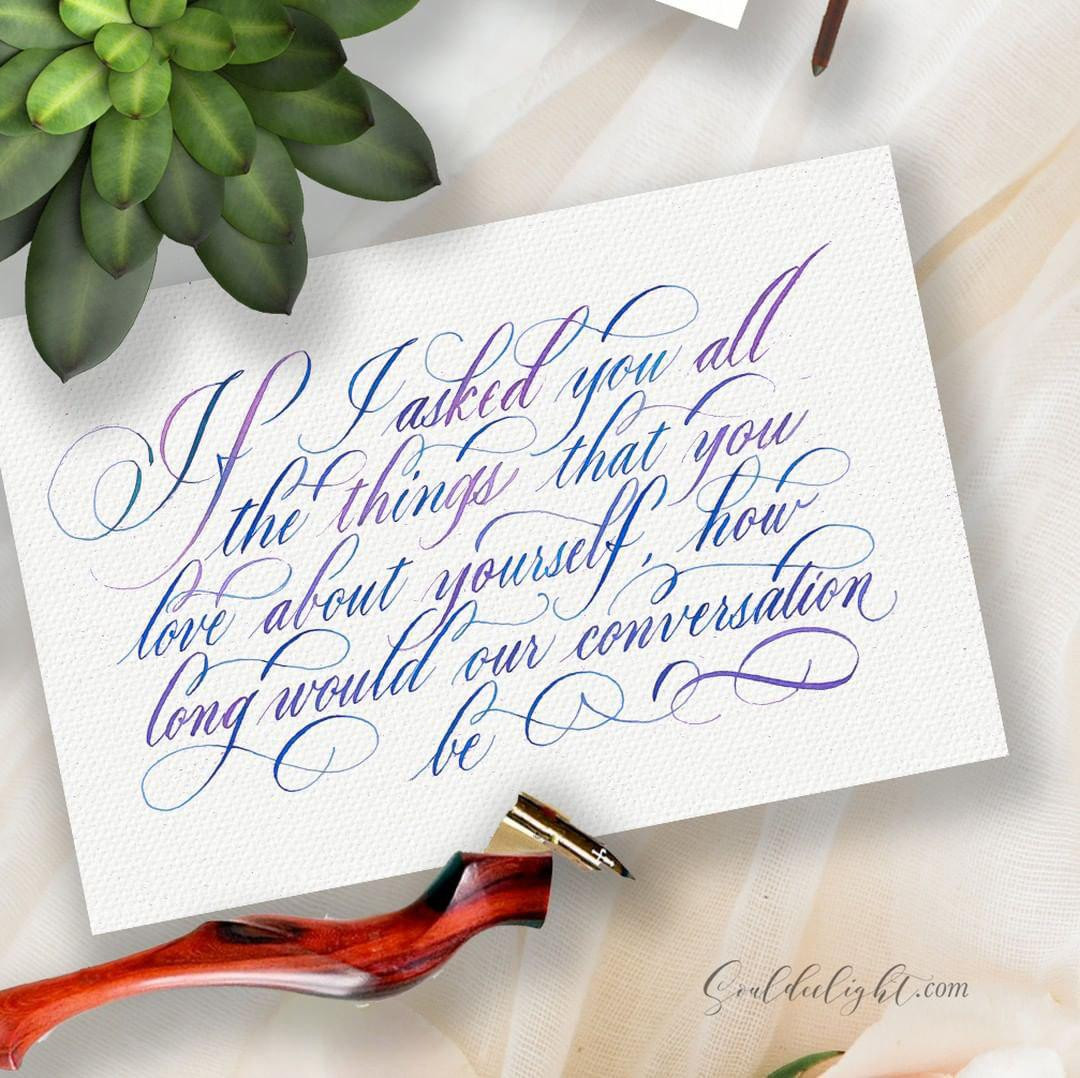 If I asked you all
the things that you
love about yourself, how
long would our conversation
be
Souldeelight.com